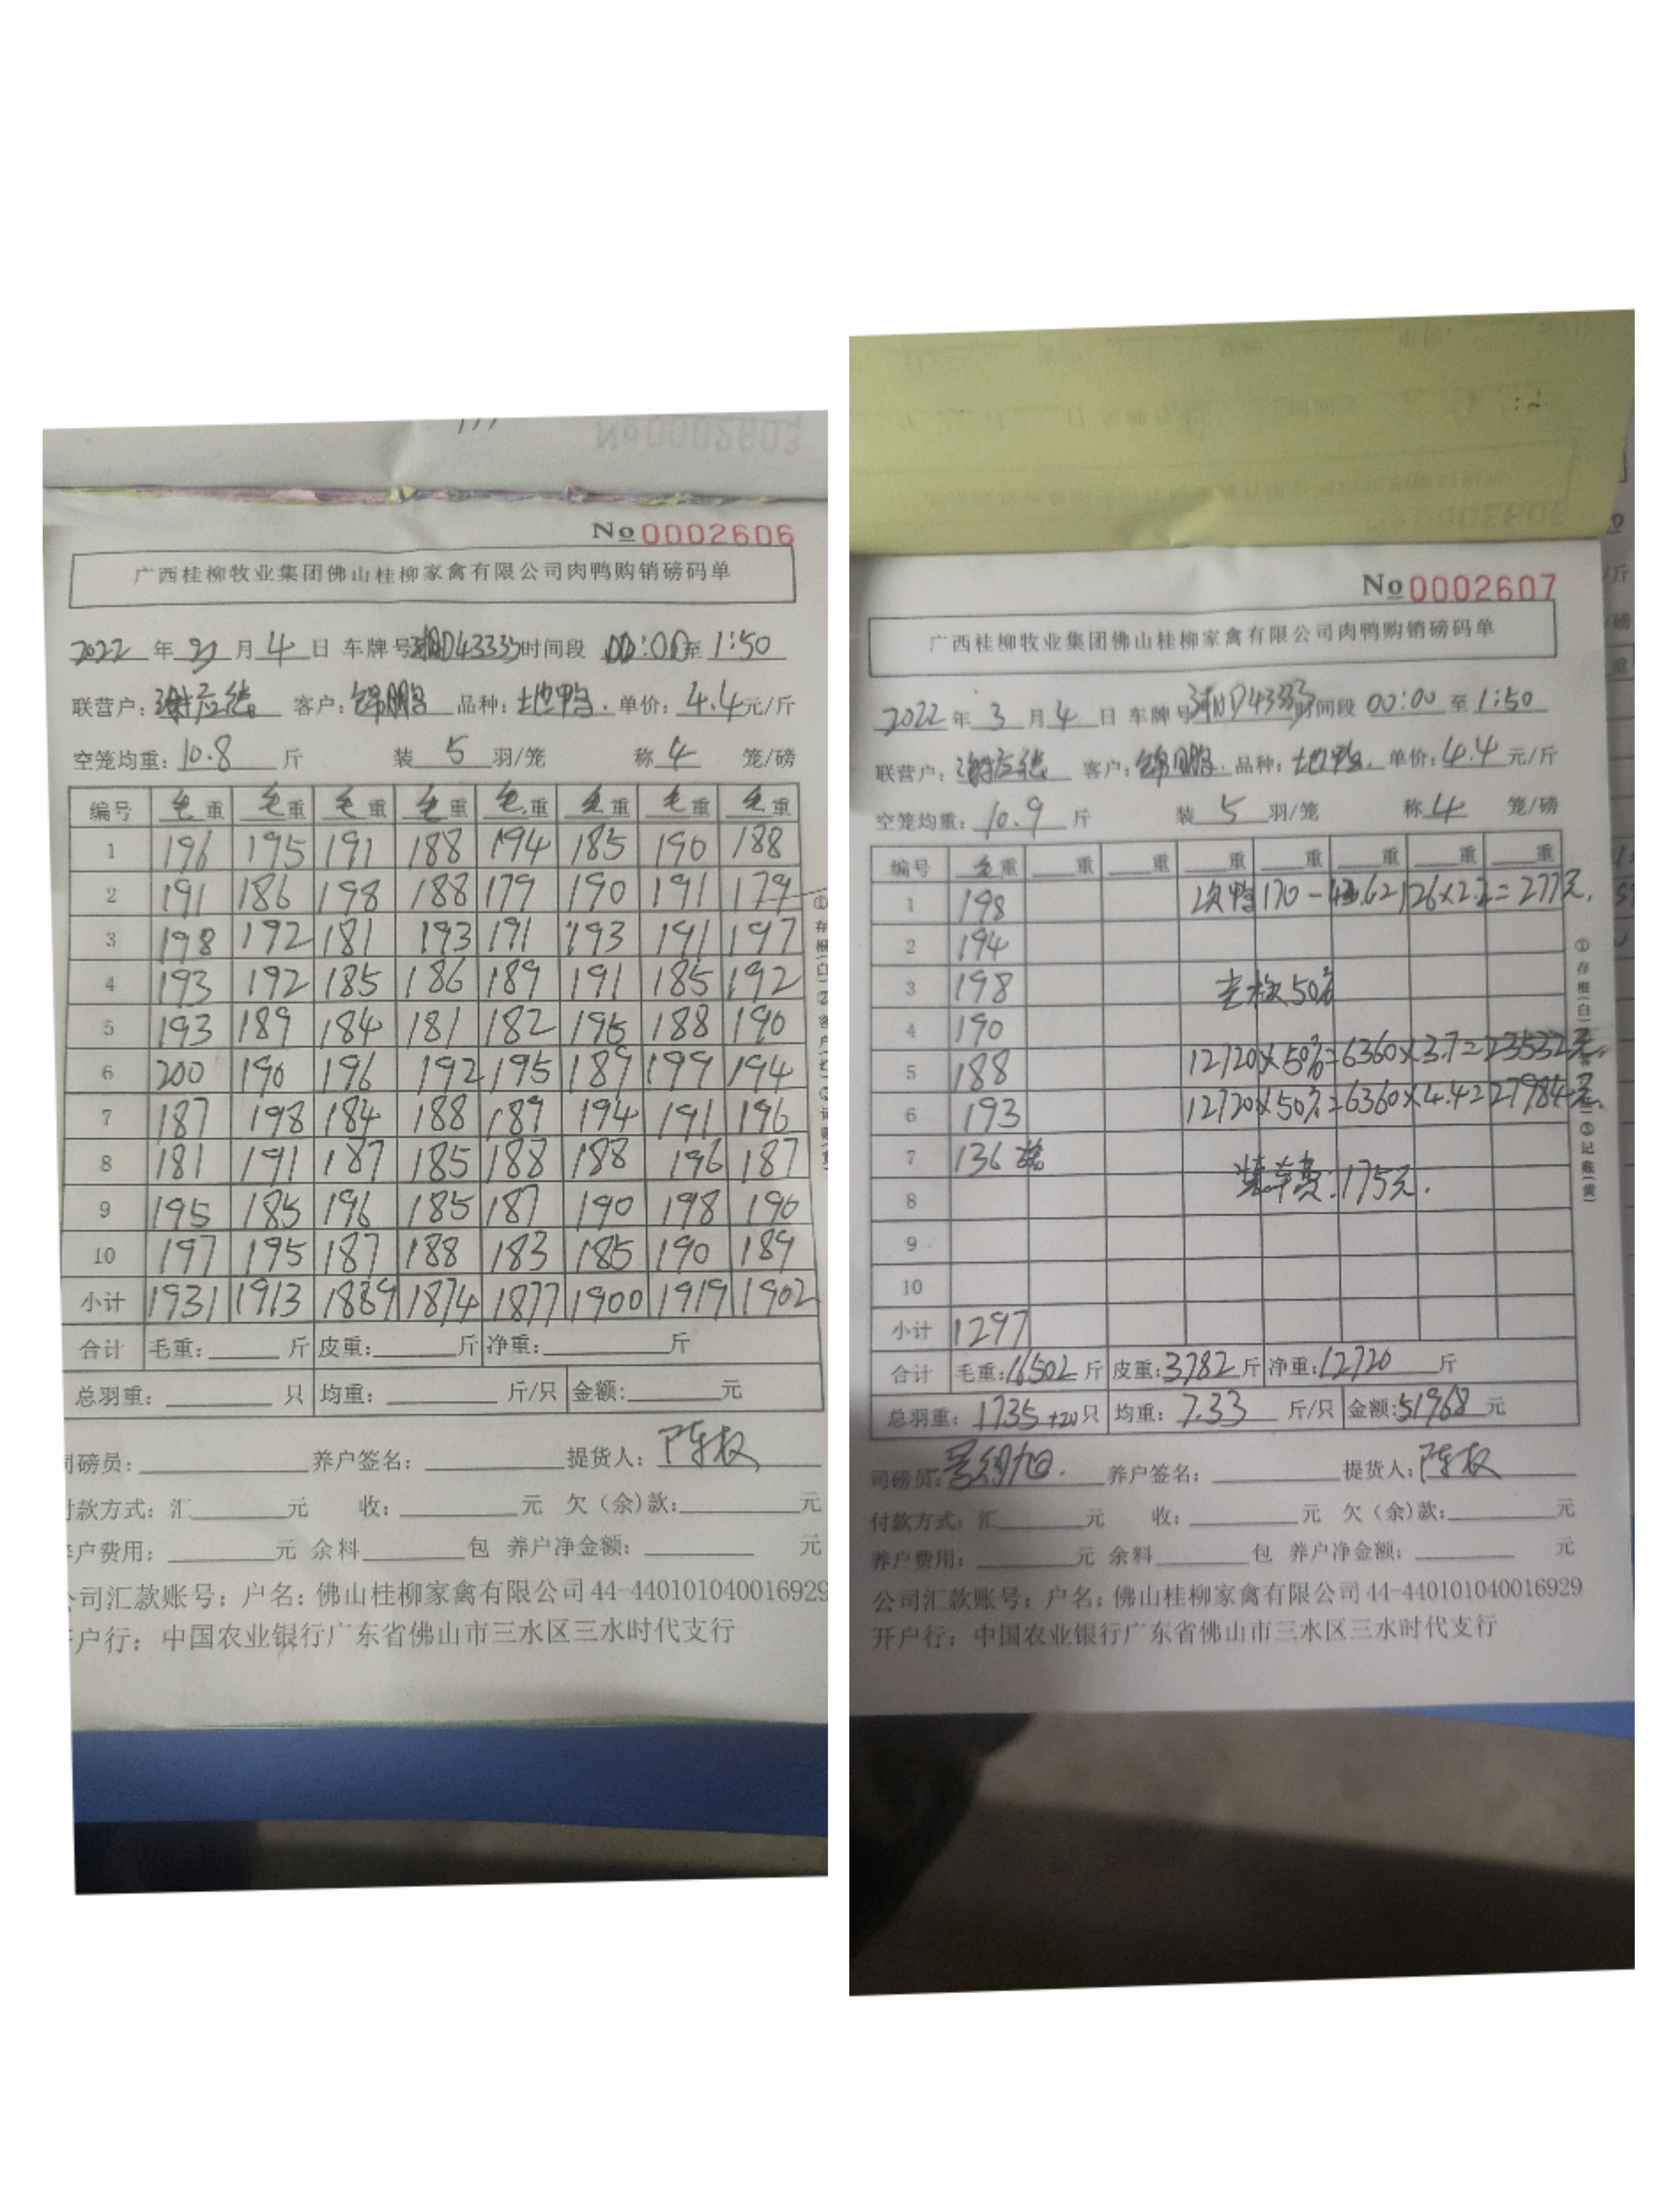 No 0002606
广西桂柳牧业集团佛山桂柳家禽有限公司肉鸭购销磅码单
2022 年 3 月 4 日 车牌号 湘D43333 时间段 00:00 至 1:50
联营户: 谢应德 客户: 锦鹏 品种: 土地鸭. 单价: 4.4 元/斤
空笼均重: 10.8 斤 装 5 羽/笼 称 4 笼/磅
编号 毛重 毛重 毛重 毛重 毛重 毛重 毛重 毛重
1 196 195 191 188 194 185 190 188
2 191 186 198 188 179 190 191 179
3 198 192 181 193 191 193 191 197
4 193 192 185 186 189 191 185 192
5 193 189 184 181 182 195 188 190
6 200 190 196 192 195 189 199 194
7 187 198 184 188 189 194 191 196
8 181 191 187 185 188 188 196 187
9 195 185 196 185 187 190 198 190
10 197 195 187 188 183 185 190 189
小计 1931 1913 1889 1874 1877 1900 1919 1902
合计 毛重: 斤 皮重: 斤 净重: 斤
总羽重: 只 均重: 斤/只 金额: 元
司磅员: 养户签名: 提货人: 陈权
付款方式: 汇 元 收: 元 欠(余)款: 元
养户费用: 元 余料 包 养户净金额: 元
公司汇款账号: 户名: 佛山桂柳家禽有限公司 44-440101040016929
开户行: 中国农业银行广东省佛山市三水区三水时代支行
No 0002607
广西桂柳牧业集团佛山桂柳家禽有限公司肉鸭购销磅码单
2022 年 3 月 4 日 车牌号 湘D43333 时间段 00:00 至 1:50
联营户: 谢应德 客户: 锦鹏. 品种: 土地鸭. 单价: 4.4 元/斤
空笼均重: 10.9 斤 装 5 羽/笼 称 4 笼/磅
编号 毛重 重 重 重 重 重 重 重
1 198 次鸭 170 - 126×2.2=277元.
2 194
3 198 50%
4 190
5 188 12720×50%=6360×3.7=23532元.
6 193 12720×50%=6360×4.4=27984元.
7 136
8 装车费:175元.
9
10
小计 1297
合计 毛重: 16502 斤 皮重: 3782 斤 净重: 12720 斤
总羽重: 1735+20 只 均重: 7.33 斤/只 金额: 51968 元
司磅员: 养户签名: 提货人: 陈权
付款方式: 汇 元 收: 元 欠(余)款: 元
养户费用: 元 余料 包 养户净金额: 元
公司汇款账号: 户名: 佛山桂柳家禽有限公司 44-440101040016929
开户行: 中国农业银行广东省佛山市三水区三水时代支行